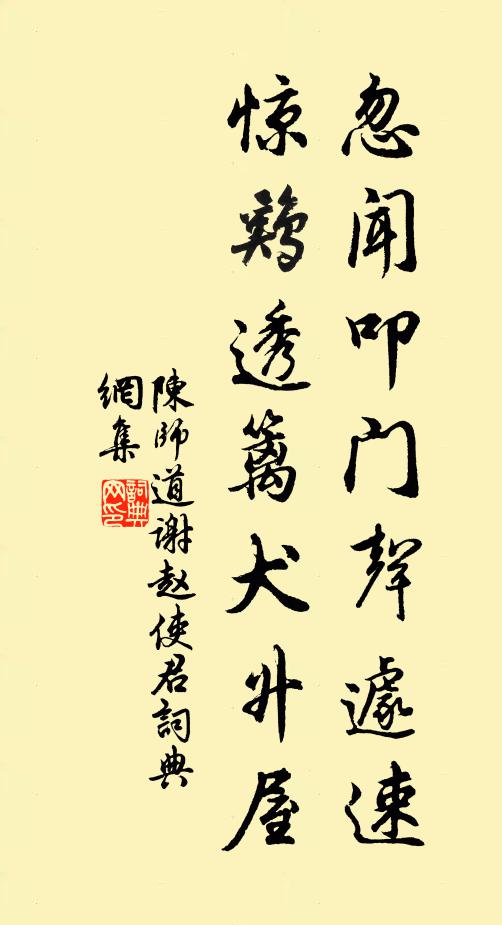 忽闻叩门声遽速
惊鸡透篱犬升屋
陳師道谢赵使君詞典
網集
詞典
网印